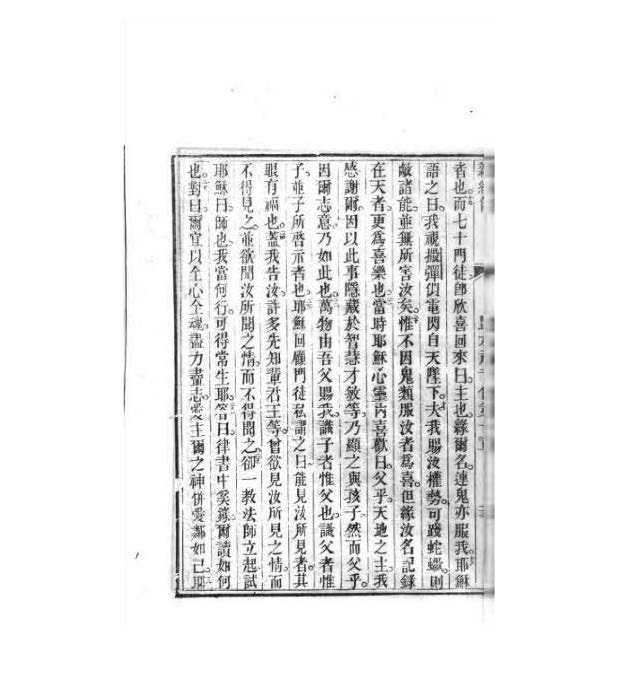 者也而七十門徒卽欣喜回來曰主也緣爾名連鬼亦服我耶穌
語之曰我視撒彈似電閃自天墜下夫我賜汝權勢可踐蛇蠍則
敵諸能並無所害汝矣惟不因鬼類服汝者為喜但緣汝名記錄
在天者更為喜樂也當時耶穌心靈內喜歡曰父乎天地之主我
感謝爾因以此事隱藏於智慧才敏等乃顯之與孩子然而父乎
因爾志意乃如此也萬物由吾父賜我識子者惟父也識父者惟
子並子所啓示者也耶穌回顧門徒私謂之曰能見汝所見者其
眼有福也蓋我告汝許多先知輩君王等曾欲見汝所見之情而
不得見之並欲聞汝所聞之情而不得聞之卻一教法師立起試
耶穌曰師也我當何行可得常生耶答曰律書中奚錄爾讀如何
也對曰爾宜以全心全魂盡力盡志愛主爾之神併愛鄰如己耶